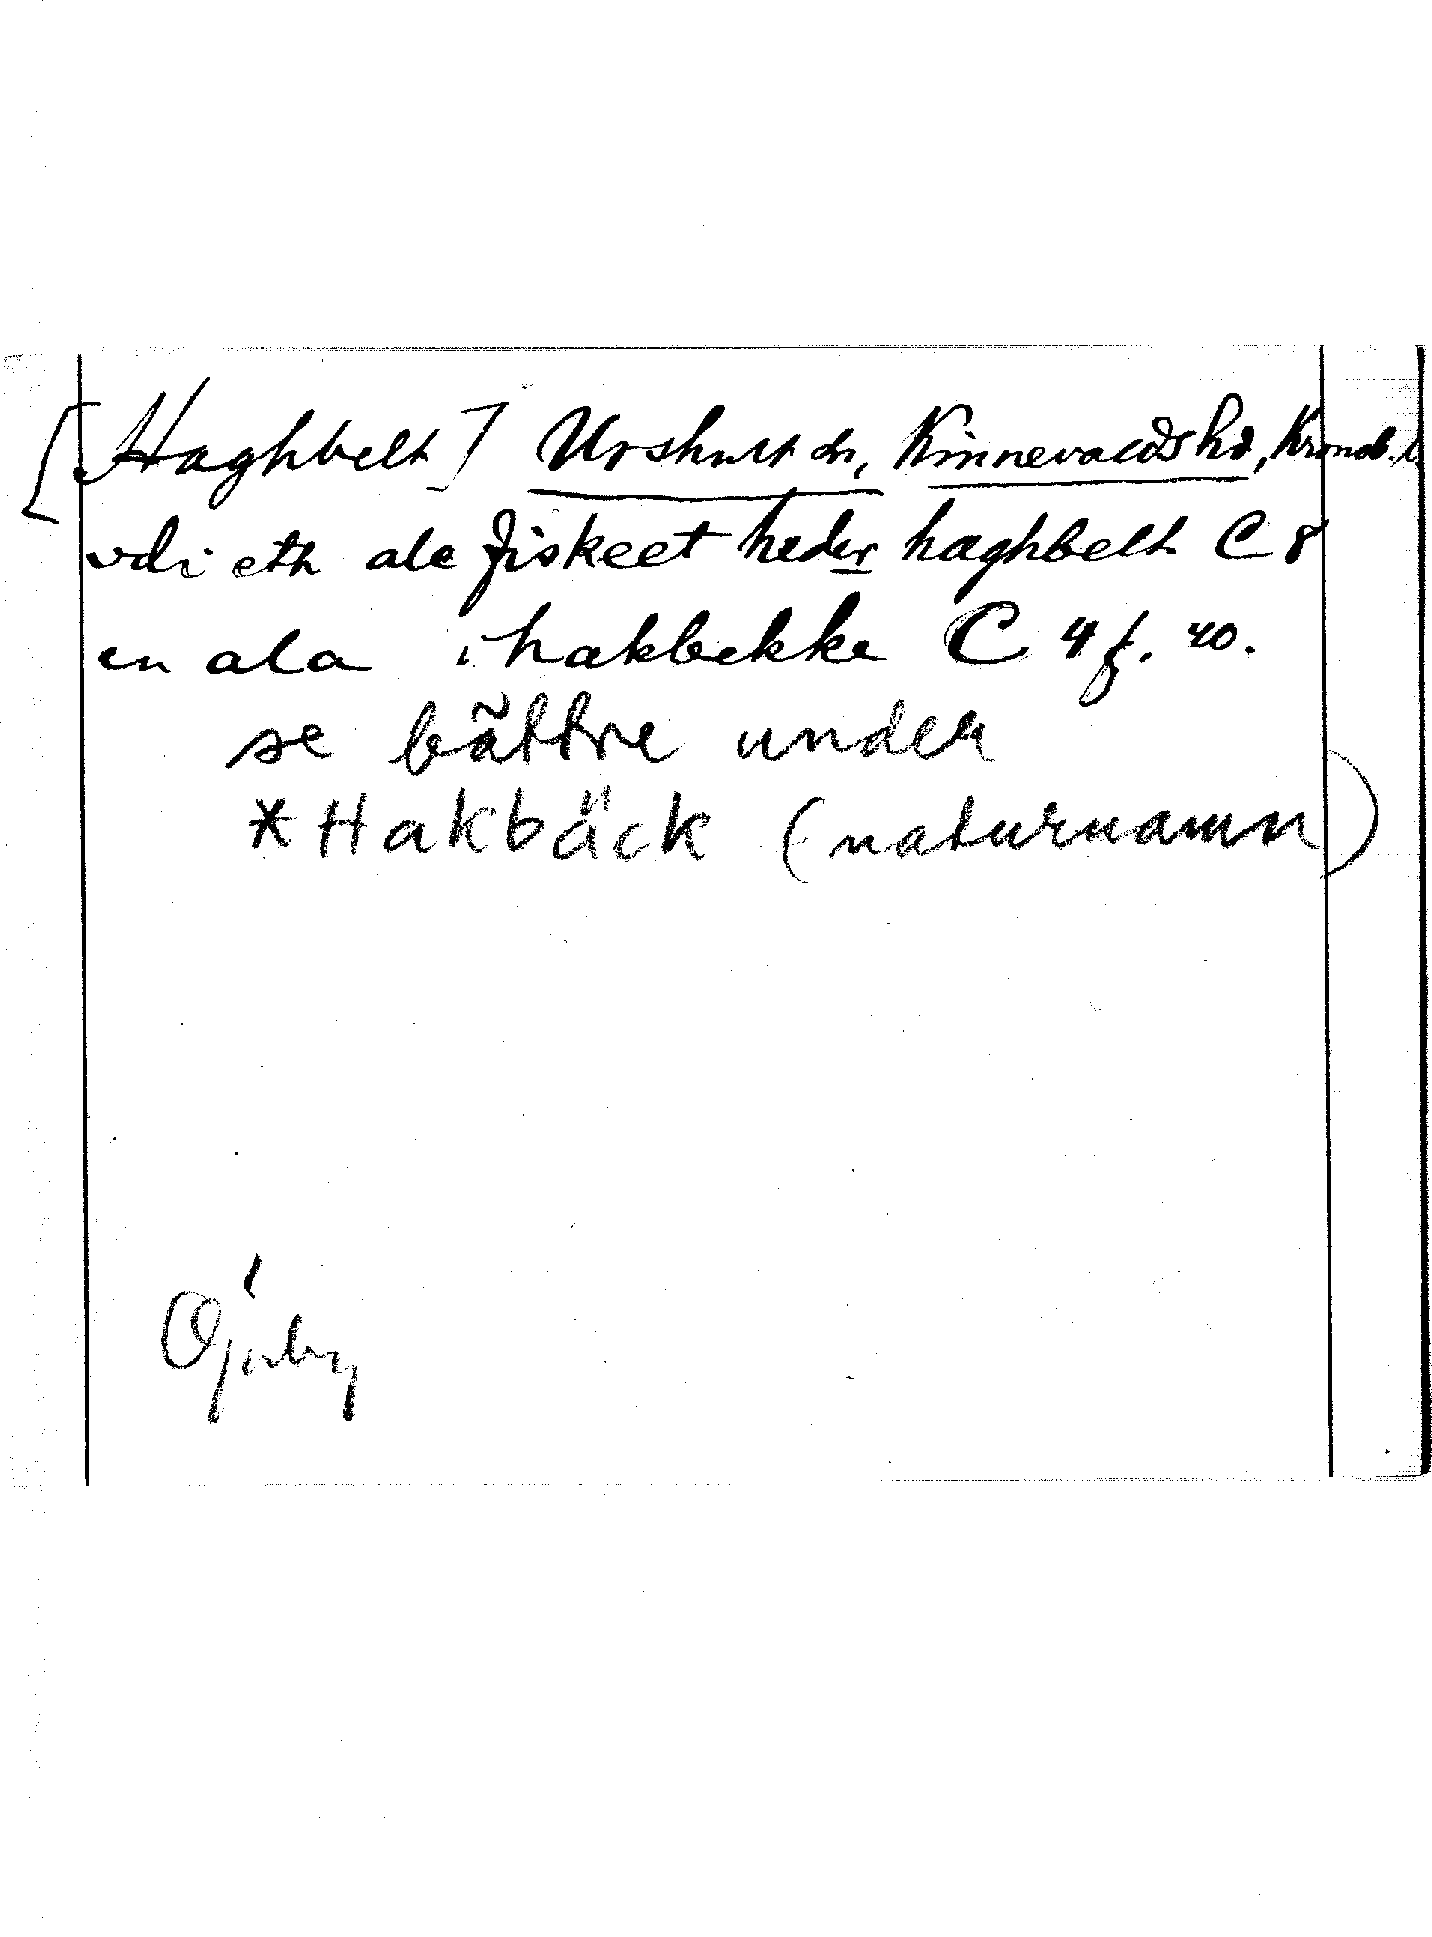 [Haghbelt] Urshult sn, Kinnevalds hd, Kronob. l.
vdi eth ale fiskeet heder haghbelt C 8
en ala i hakbekke C 4 f. 40.
se bättre under
*Hakbäck (naturnamn)